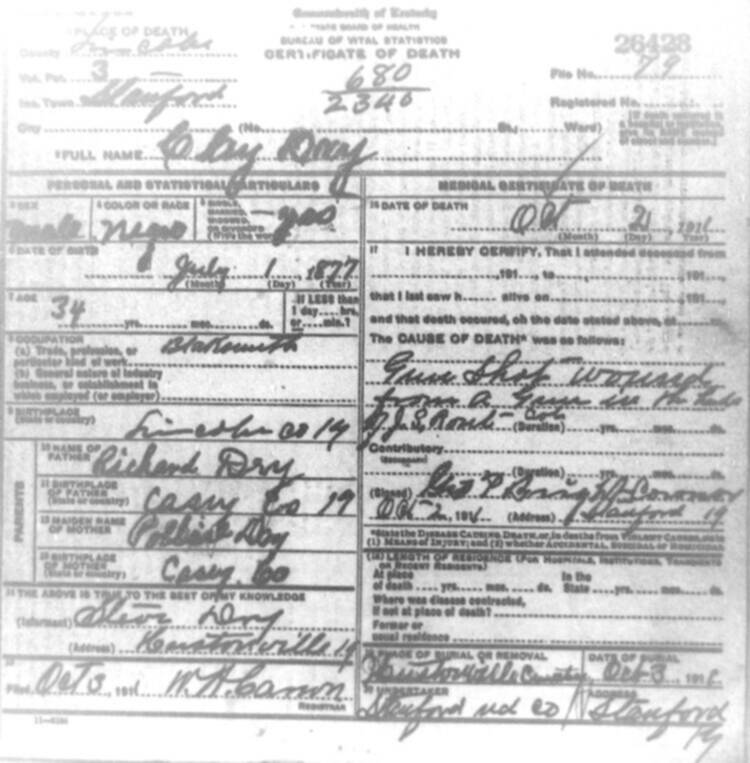 Commonwealth of Kentucky
STATE BOARD OF HEALTH
BUREAU OF VITAL STATISTICS
CERTIFICATE OF DEATH
PLACE OF DEATH
County Lincoln
Vot. Pct. 3
Inc. Town Stanford
City (No. St., Ward)
680
2340
26428
File No. 79
Registered No.
FULL NAME Clay Dry
PERSONAL AND STATISTICAL PARTICULARS
SEX male
COLOR OR RACE negro
SINGLE, MARRIED, WIDOWED OR DIVORCED (Write the word) yes
DATE OF BIRTH July 1 1877
(Month) (Day) (Year)
AGE 34 yrs. mos. ds.
If LESS than 1 day hrs. or min.?
OCCUPATION
(a) Trade, profession, or particular kind of work
(b) General nature of industry business, or establishment in which employed (or employer)
BIRTHPLACE
(State or country) Lincoln Co Ky
PARENTS
10 NAME OF FATHER Richard Dry
11 BIRTHPLACE OF FATHER
(State or country) Casey Co Ky
12 MAIDEN NAME OF MOTHER
13 BIRTHPLACE OF MOTHER
(State or country) Casey Co
14 THE ABOVE IS TRUE TO THE BEST OF MY KNOWLEDGE
(Informant) Dry
(Address) Hustonville Ky
Filed Oct 3, 1911 W. H.
REGISTRAR
11-6184
MEDICAL CERTIFICATE OF DEATH
16 DATE OF DEATH Oct 2, 1911
(Month) (Day) (Year)
17 I HEREBY CERTIFY, That I attended deceased from
, 191 , to , 191 ,
that I last saw h alive on , 191 ,
and that death occured, on the date stated above, at
The CAUSE OF DEATH* was as follows:
Gun Shot wound
from a Gun in the
(Duration) yrs. mos. ds.
Contributory
(Duration) yrs. mos. ds.
(Signed) Geo P Bright Coroner
Oct 2, 1911 (Address) Stanford Ky
*State the DISEASE CAUSING DEATH, or, in deaths from VIOLENT CAUSES, state
(1) MEANS OF INJURY; and (2) whether ACCIDENTAL, SUICIDAL OR HOMICIDAL
(18) LENGTH OF RESIDENCE (FOR HOSPITALS, INSTITUTIONS, TRANSIENTS OR RECENT RESIDENTS)
At place of death yrs. mos. ds. In the State yrs. mos. ds.
Where was disease contracted,
if not at place of death?
Former or
usual residence
19 PLACE OF BURIAL OR REMOVAL
Hustonville
DATE OF BURIAL
Oct 3 191
20 UNDERTAKER
Stanford Und Co
ADDRESS
Stanford Ky